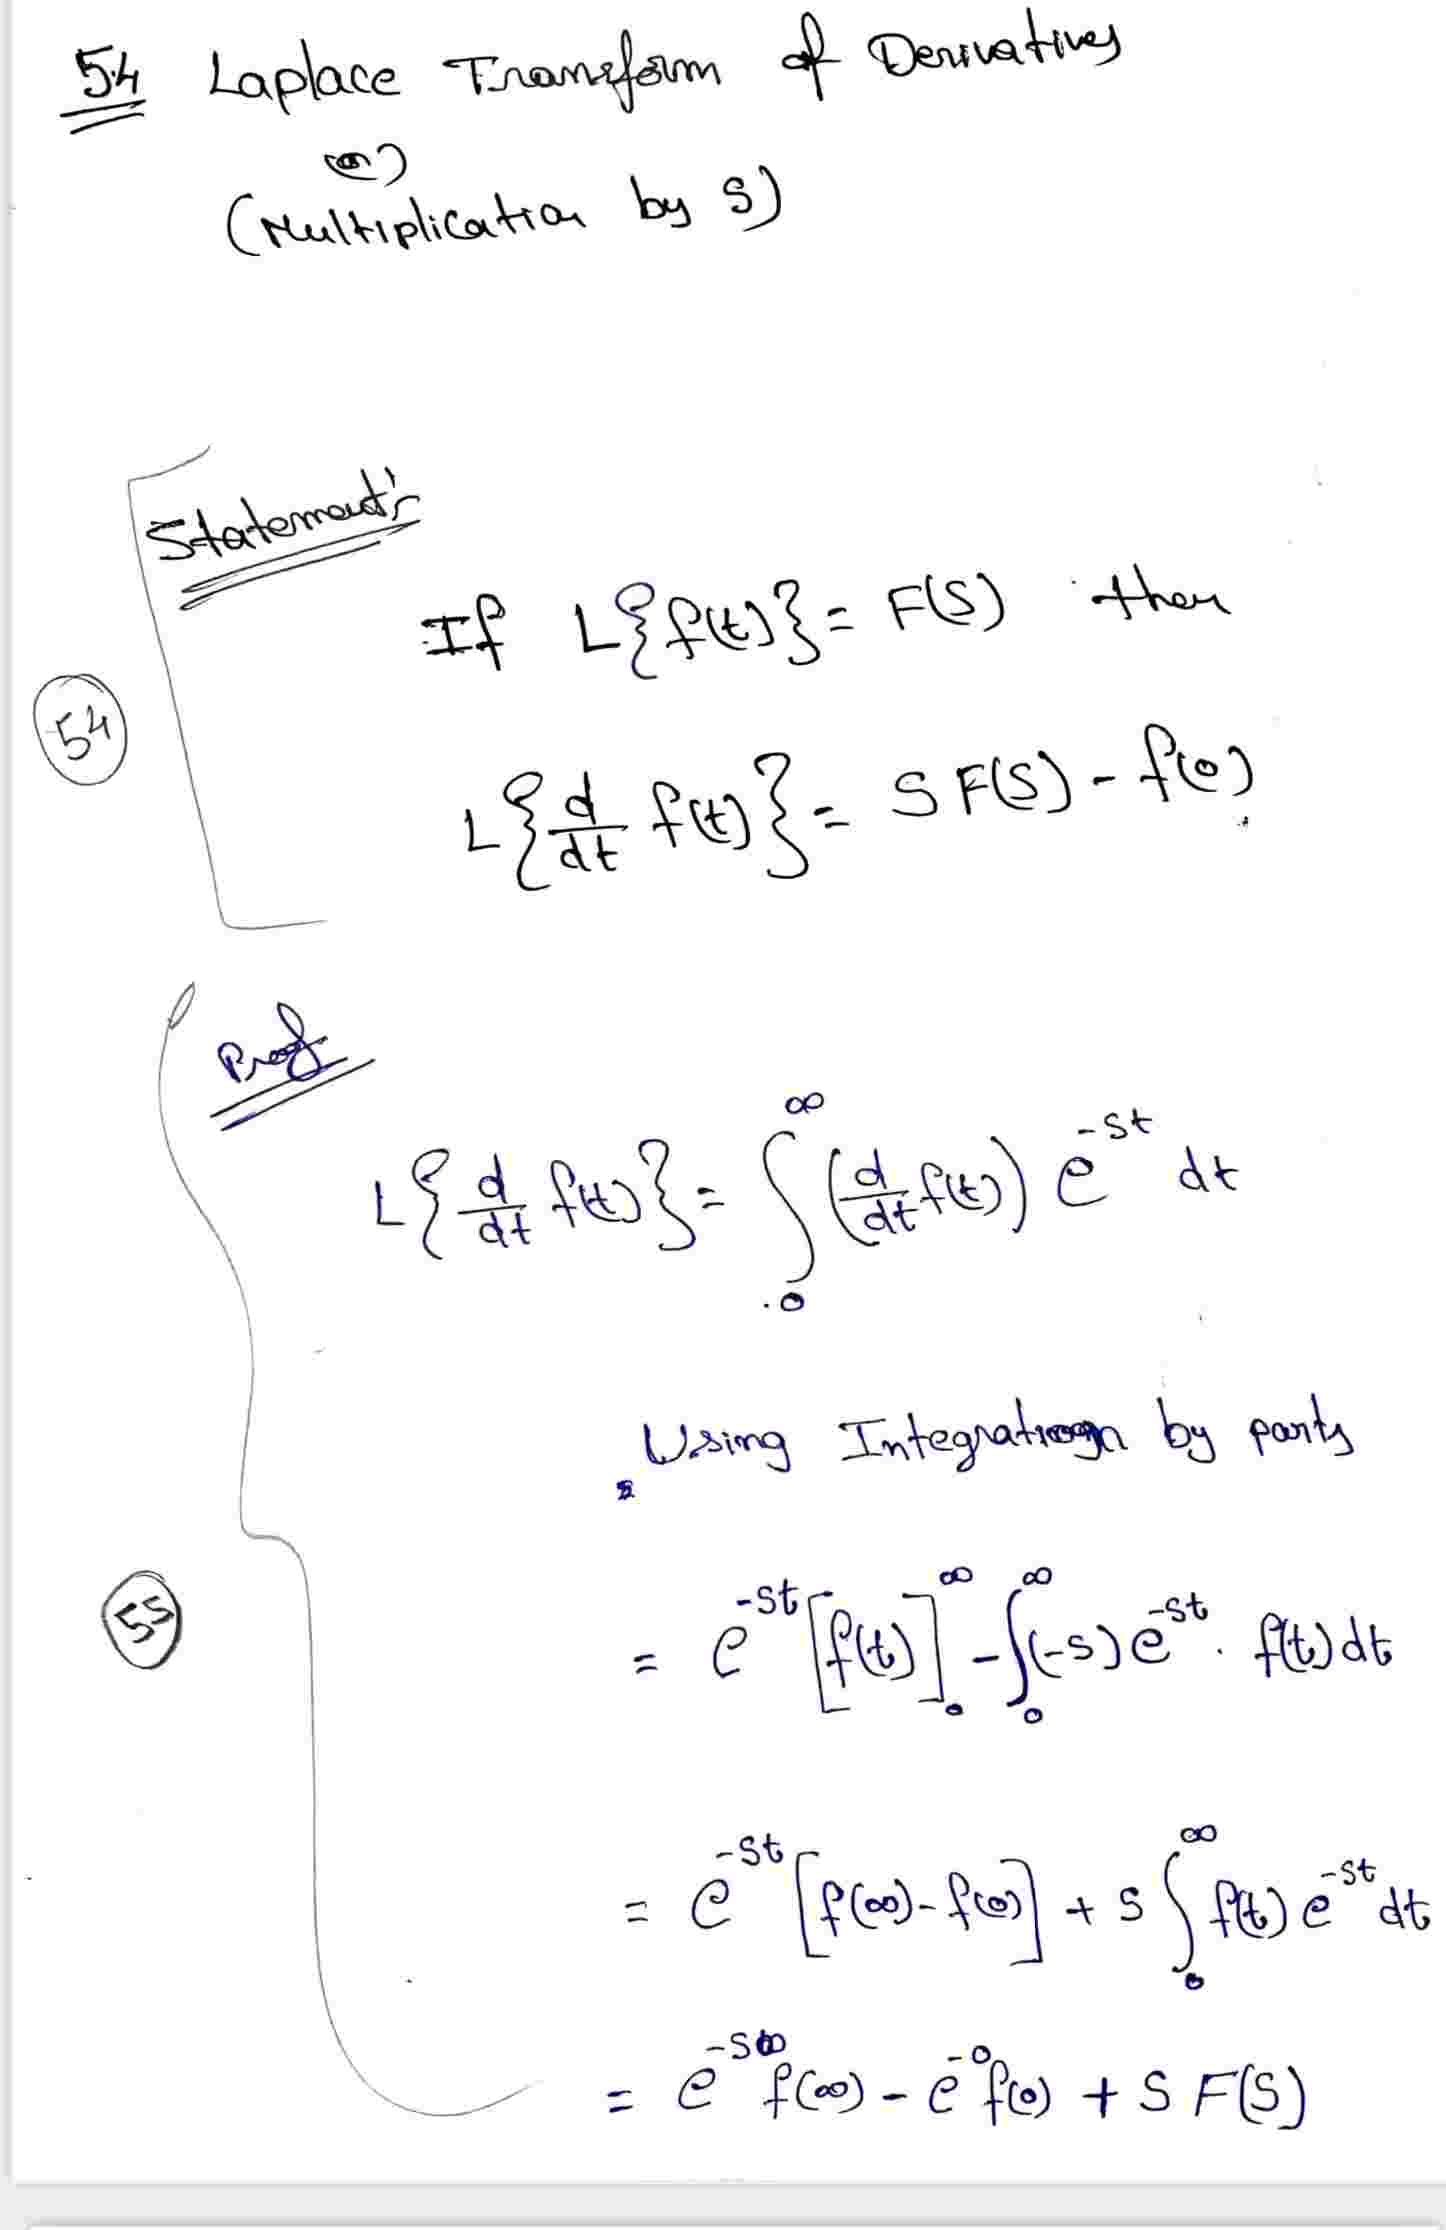 5.4 Laplace Transform of Derivatives
(or)
(Multiplication by S)
Statement:
If L{f(t)} = F(S) then
54
L{d/dt f(t)} = S F(S) - f(0)
Proof
L{d/dt f(t)} = ∫₀^∞ (d/dt f(t)) e^{-st} dt
Using Integration by parts
55
= e^{-st} [f(t)]₀^∞ - ∫₀^∞ (-s) e^{-st} . f(t) dt
= e^{-st} [f(∞) - f(0)] + s ∫₀^∞ f(t) e^{-st} dt
= e^{-s∞} f(∞) - e^{-0} f(0) + S F(S)